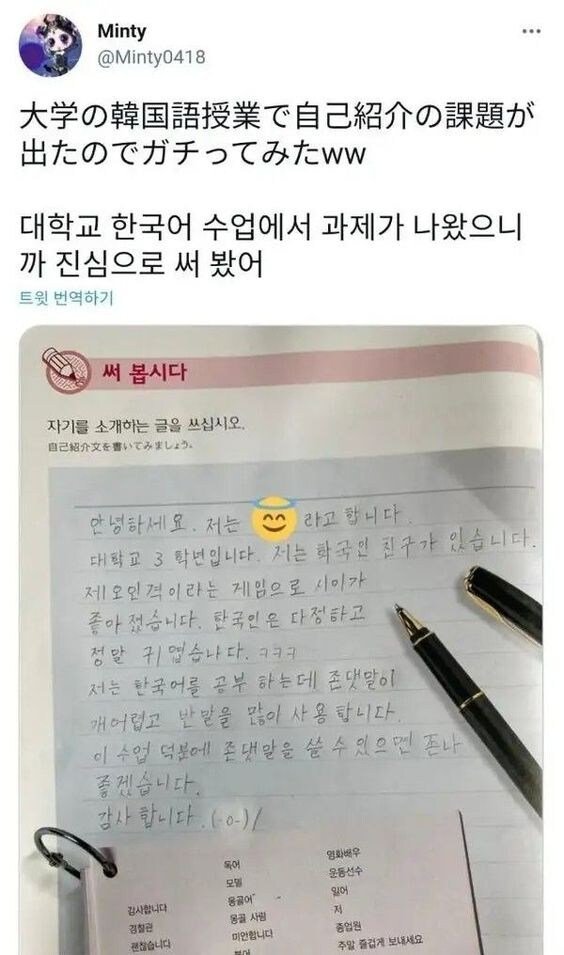 Minty
@Minty0418
大学の韓国語授業で自己紹介の課題が
出たのでガチってみたww
대학교 한국어 수업에서 과제가 나왔으니
까 진심으로 써 봤어
트윗 번역하기
써 봅시다
자기를 소개하는 글을 쓰십시오.
自己紹介文を書いてみましょう。
안녕하세요. 저는 😇 라고 합니다.
대학교 3 학년입니다. 저는 화국인 친구가 있습니다.
제오인격이라는 게임으로 사이가
좋아 졌습니다. 한국인은 다정하고
정말 귀 엽습니다. ㅋㅋㅋ
저는 한국어를 공부 하는데 존댓말이
개어렵고 반말을 많이 사용 합니다.
이 수업 덕분에 존댓말을 쓸 수 있으면 존나
좋겠습니다.
감사 합니다.(-o-)/
독어 영화배우
모델 운동선수
감사합니다 몽골어 일어
경찰관 몽골 사람 저
괜찮습니다 미안합니다 종업원
주말 즐겁게 보내세요